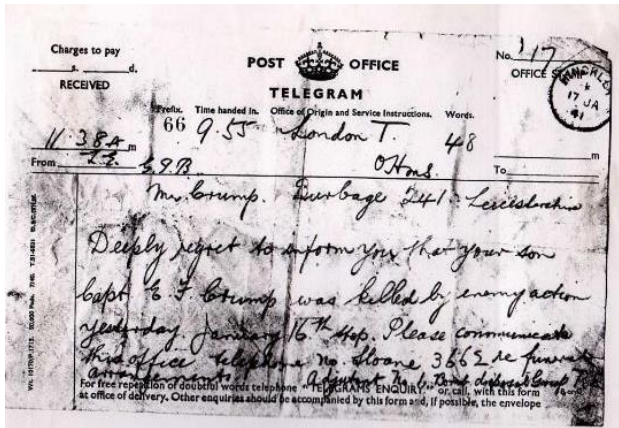 Charges to pay
s. d.
RECEIVED
POST OFFICE
TELEGRAM
No. 117
OFFICE STAMP
HINCKLEY
17 JA
41
Prefix. Time handed in. Office of Origin and Service Instructions. Words.
66 9.55 London T. 48
11.38A m
OHMS.
From
To m
Mr Crump. Burbage 241 Leicestershire
Deeply regret to inform you that your son
Capt E. F. Crump was killed by enemy action
yesterday January 16th stop. Please communicate
this office telephone No. Sloane 3662 re funeral
arrangements Adjutant No 1 Bomb disposal Group
For free repetition of doubtful words telephone "TELEGRAMS ENQUIRY" or call, with this form
at office of delivery. Other enquiries should be accompanied by this form and, if possible, the envelope